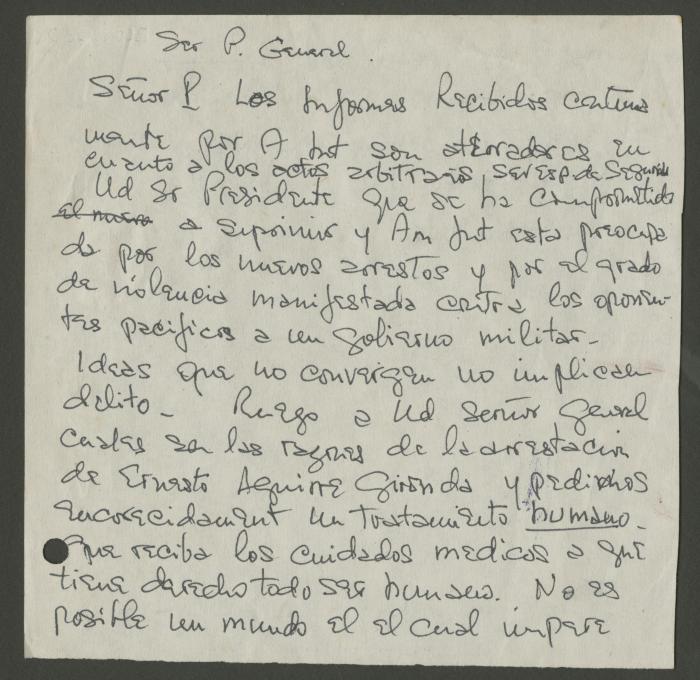 Ser P. General.
Señor P Los Informes Recibidos continua
mente por A Int son aterradores en
cuanto a los actos arbitrarios ser esp. de Seguridad
Ud Sr Presidente que se ha comprometido
el nuevo a suprimir y Am Int esta preocupa
da por los nuevos arrestos y por el grado
de violencia manifestada contra los oponen-
tes pacificos a un gobierno militar-
Ideas que no convergen no implican
delito- Ruego a Ud señor General
cuales son las razones de la arrestacion
de Ernesto Aguirre Gironda y pedimos
encarecidament un tratamiento humano-
Que reciba los cuidados medicos a que
tiene derecho todo ser humano. No es
posible un mundo el el cual impere